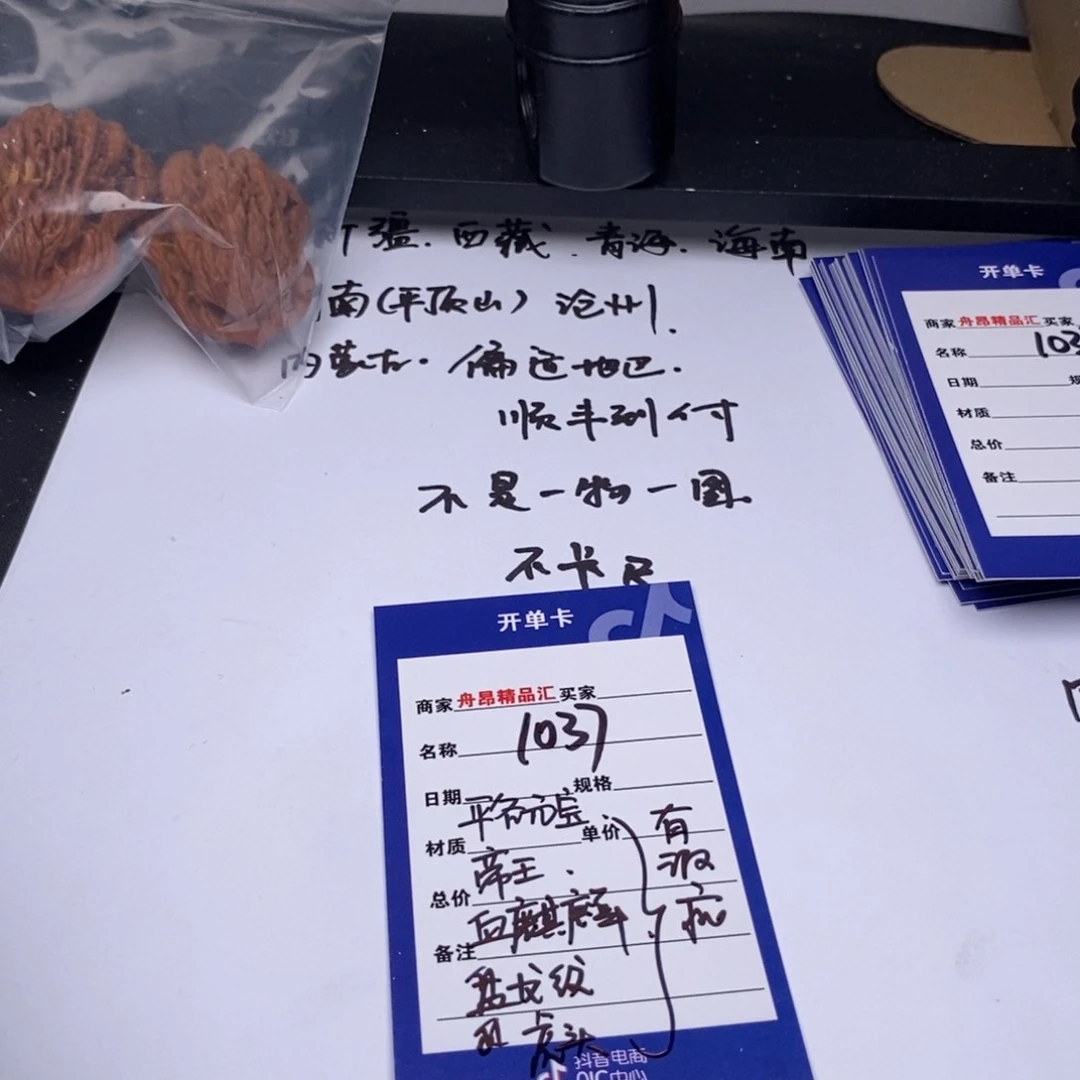 疆.西藏.青海.海南
南(平顶山)沧州.
内蒙古.偏远地巴.
顺丰到付
不是一物一图
不卡尺
开单卡
商家舟昂精品汇买家
名称 103
日期
材质
总价
备注
开单卡
商家舟昂精品汇买家
名称 1037
日期 规格
平谷元宝
材质 单价 有
帝王. 瑕
总价
血麒麟 疵
备注
盘龙纹
虎头
抖音电商
QIC中心